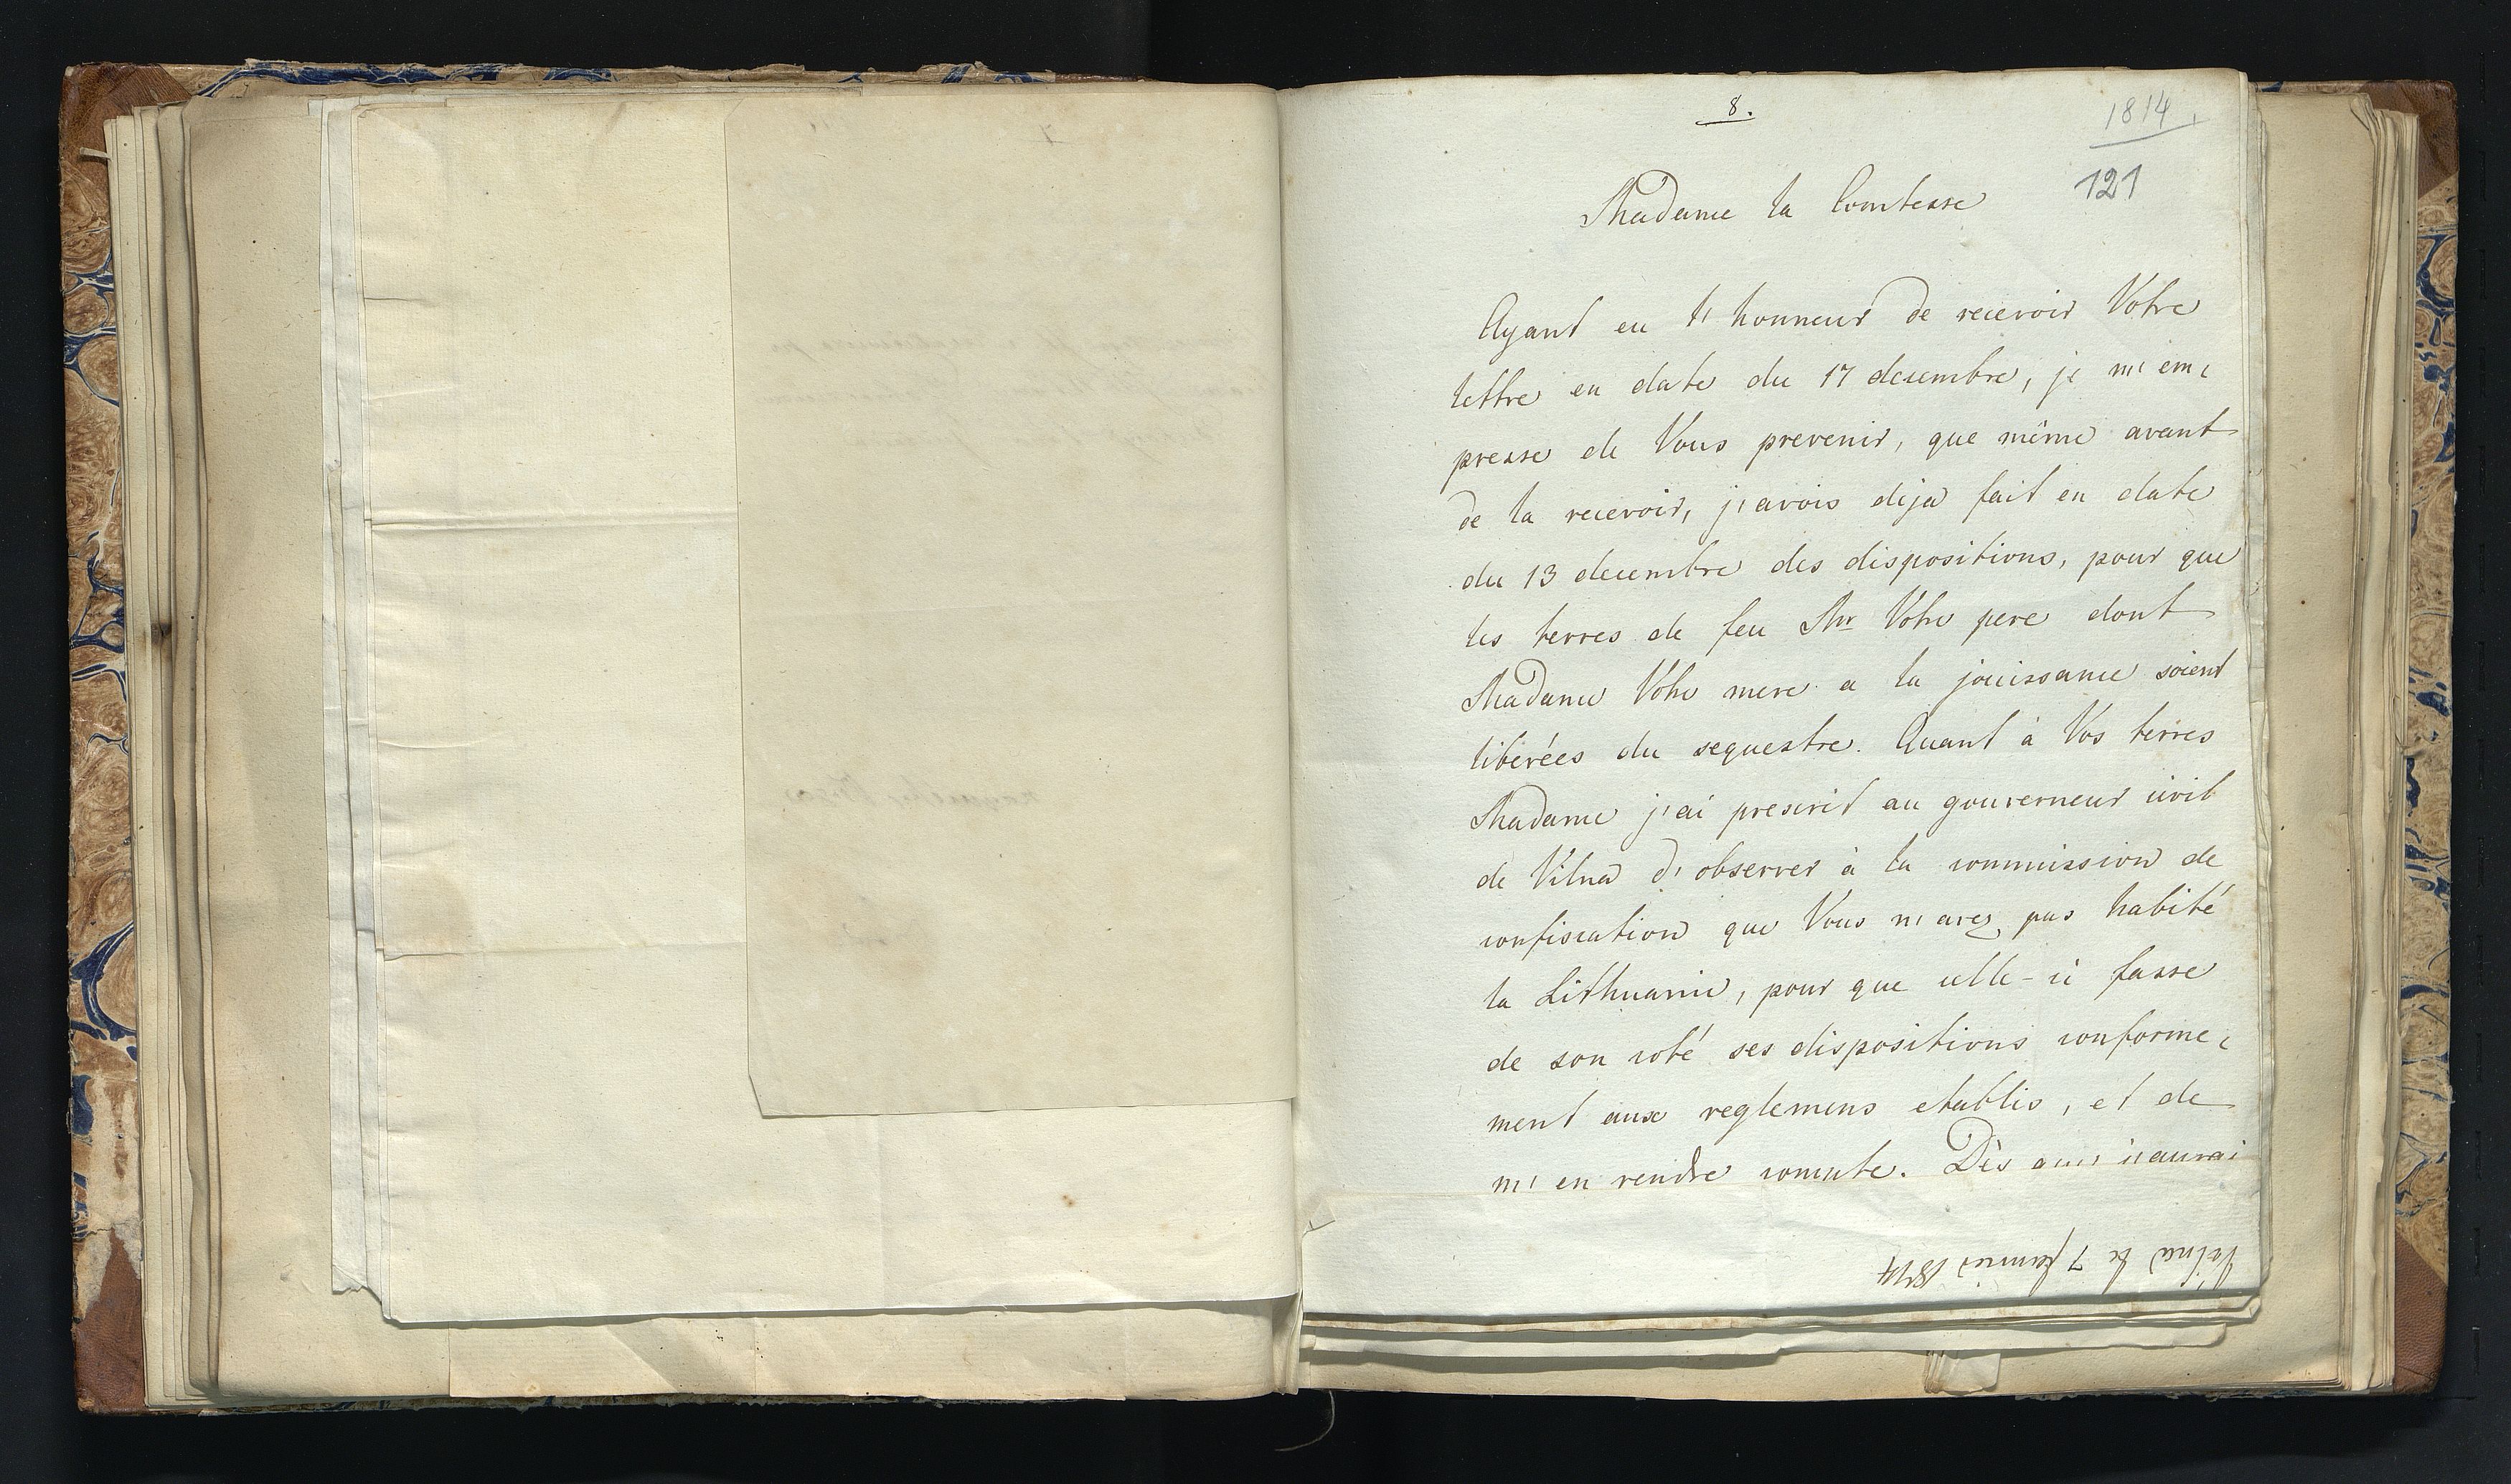 8.
1814
121
Madame la Comtesse
Ayant eu l'honneur de recevoir Votre
lettre en date du 17 decembre, je m'em,
presse de Vous prevenir, que même avant
de la recevoir, j'avois deja fait en date
du 13 decembre des dispositions, pour que
les terres de feu Mr Votre pere dont
Madame Votre mere a la jouissance soient
libérées du sequestre. Quant à Vos terres
Madame j'ai prescrit au gouverneur civil
de Vilna d'observer à la commission de
confiscation que Vous n'avez pas habité
la Lithuanie, pour que celle-ci fasse
de son coté ses dispositions conforme,
ment aux reglemens etablis, et de
m'en rendre compte. Dès que j'aurai
Vilna le 7 janvier 1814